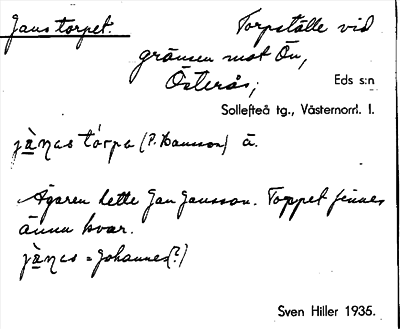 Janstorpet. Torpställe vid
gränsen mot Ön,
Österås;
Eds s:n
Sollefteå tg., Västernorrl. l.
jànas tårpa (P. Hansson) ä.
Ägaren hette Jan Jansson. Torpet finnes
ännu kvar.
jànas = Johannes (?)
Sven Hiller 1935.